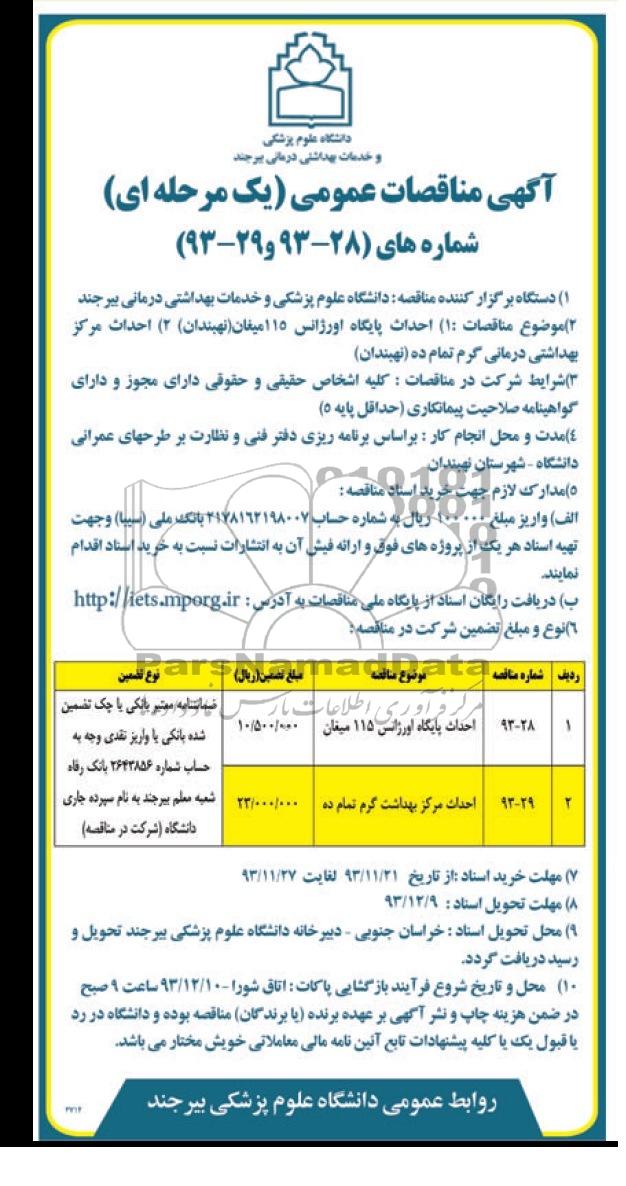 دانشگاه علوم پزشکی
و خدمات بهداشتی درمانی بیرجند
آگهی مناقصات عمومی (یک مرحله ای)
شماره های (۲۸-۹۳ و۲۹-۹۳)
۱) دستگاه برگزار کننده مناقصه : دانشگاه علوم پزشکی و خدمات بهداشتی درمانی بیرجند
۲)موضوع مناقصات :۱) احداث پایگاه اورژانس ۱۱۵میغان(نهبندان) ۲) احداث مرکز
بهداشتی درمانی گرم تمام ده (نهبندان)
۳)شرایط شرکت در مناقصات : کلیه اشخاص حقیقی و حقوقی دارای مجوز و دارای
گواهینامه صلاحیت پیمانکاری (حداقل پایه ۵)
۴)مدت و محل انجام کار : براساس برنامه ریزی دفتر فنی و نظارت بر طرحهای عمرانی
دانشگاه - شهرستان نهبندان
۵)مدارک لازم جهت خرید اسناد مناقصه :
الف) واریز مبلغ ۱۰۰۰۰۰ ریال به شماره حساب ۲۱۷۸۱۶۲۱۹۸۰۰۷ بانک ملی (سیبا) وجهت
تهیه اسناد هر یک از پروژه های فوق و ارائه فیش آن به انتشارات نسبت به خرید اسناد اقدام
نمایند.
ب) دریافت رایگان اسناد از پایگاه ملی مناقصات به آدرس : http://iets.mporg.ir
۶)نوع و مبلغ تضمین شرکت در مناقصه :
ParsNamadData
ردیف شماره مناقصه موضوع مناقصه مبلغ تضمین(ریال) نوع تضمین
۱ ۹۳-۲۸ احداث پایگاه اورژانس ۱۱۵ میغان ۱۰/۵۰۰/۰۰۰
ضمانتنامه معتبر بانکی یا چک تضمین
شده بانکی یا واریز نقدی وجه به
حساب شماره ۲۶۴۳۸۵۶ بانک رفاه
شعبه معلم بیرجند به نام سپرده جاری
دانشگاه (شرکت در مناقصه)
۲ ۹۳-۲۹ احداث مرکز بهداشت گرم تمام ده ۲۳/۰۰۰/۰۰۰
۷) مهلت خرید اسناد :از تاریخ ۹۳/۱۱/۲۱ لغایت ۹۳/۱۱/۲۷
۸) مهلت تحویل اسناد : ۹۳/۱۲/۹
۹) محل تحویل اسناد : خراسان جنوبی - دبیرخانه دانشگاه علوم پزشکی بیرجند تحویل و
رسید دریافت گردد.
۱۰) محل و تاریخ شروع فرآیند بازگشایی پاکات : اتاق شورا -۹۳/۱۲/۱۰ ساعت ۹ صبح
در ضمن هزینه چاپ و نشر آگهی بر عهده برنده (یا برندگان) مناقصه بوده و دانشگاه در رد
یا قبول یک یا کلیه پیشنهادات تابع آئین نامه مالی معاملاتی خویش مختار می باشد.
روابط عمومی دانشگاه علوم پزشکی بیرجند
۳۷۱۴